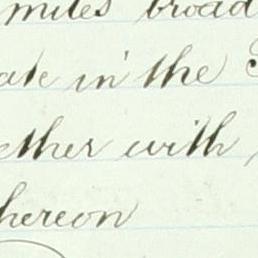 miles broad
ate in the
ether with
hereon